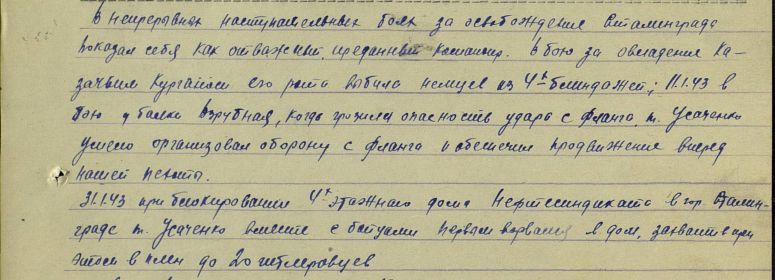 В непрерывных наступательных боях за освобождение Сталинграда
показал себя как отважный, преданный командир. В бою за овладение Ка-
зачьим Курганом его рота выбила немцев из 4х блиндажей; 11.1.43 в
бою у балки Вэрубная, когда грозила опасность удара с фланга, т. Усаченко
умело организовал оборону с фланга и обеспечил продвижение вперед
нашей пехоты.
31.1.43 при блокировании 4х этажного дома Нефтесиндиката в гор. Сталин-
граде т. Усаченко вместе с бойцами первым ворвался в дом, захватив при
этом в плен до 20 гитлеровцев